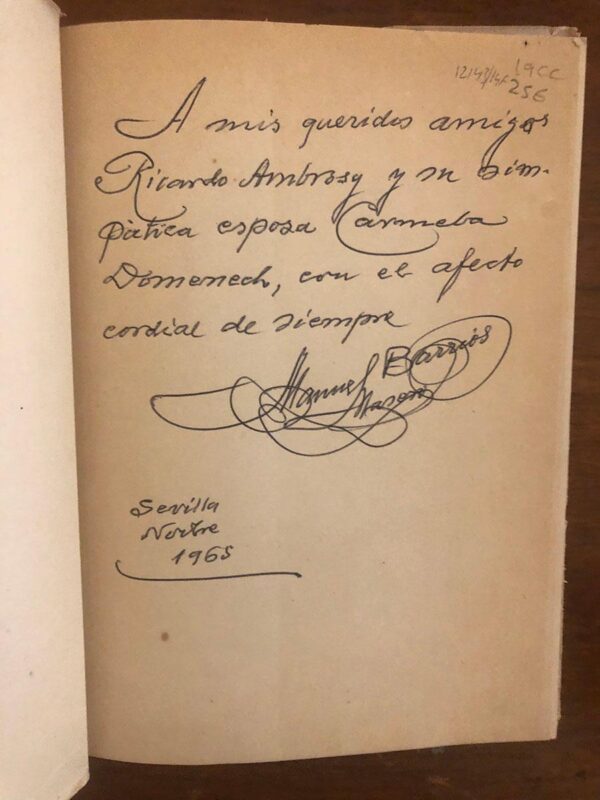 19CC
12143/14 256
A mis queridos amigos
Ricardo Ambrosy y su sim-
pàtica esposa Carmeba
Domenech, con el afecto
cordial de siempre
Manuel Barrios
Masero
Sevilla
Novbre
1965